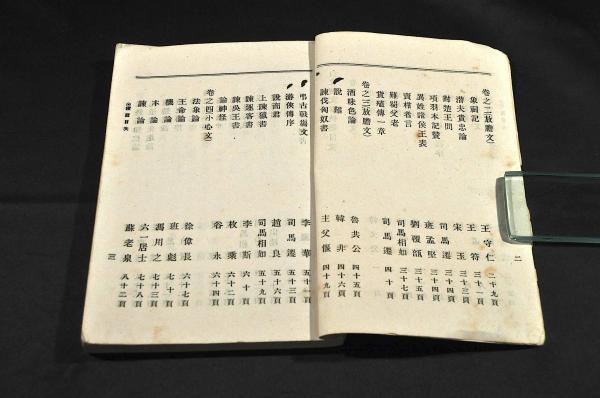 二
卷之二(放膽文)
象祠記 王守仁 二十九頁
潛夫貴忠論 王符 三十一頁
對楚王問 宋玉 三十三頁
項羽本紀贊 司馬遷 三十四頁
異姓諸侯王表 班孟堅 三十四頁
賣柑者言 劉覆瓿 三十五頁
難蜀父老 司馬相如 三十七頁
貨殖傳一章 司馬遷
卷之三(放膽文)
酒味色論 魯共公 四十五頁
說難 韓非 四十六頁
諫伐匈奴書 主父偃 四十頁
弔古戰場文 李華 五十一頁
游俠傳序 司馬遷 五十三頁
說商君 趙良 五十六頁
上諫獵書 司馬相如 五十九頁
諫逐客書 李斯 六十頁
諫吳王書 枚乘 六十二頁
論神怪 谷永 六十四頁
卷之四(小心文)
法象論 徐偉長 六十七頁
王命論 班彪 七十頁
機論 馮用之 七十三頁
本論 六一居士 七十八頁
諫論 蘇老泉 八十二頁
目次
三